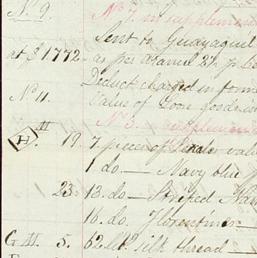 No. 9. No. 7. in supplemen
Sent to Guayaquil
at $ 1772. as per
Deduct charged in forme
No. 11. Value of Loose goods
No. 3. supplemen
19. 7 pieces of valu
1 do. — Navy blue
23. 13. do — Striped Na
16. do. Florentines
G M. 5. 62. lb. silk thread —